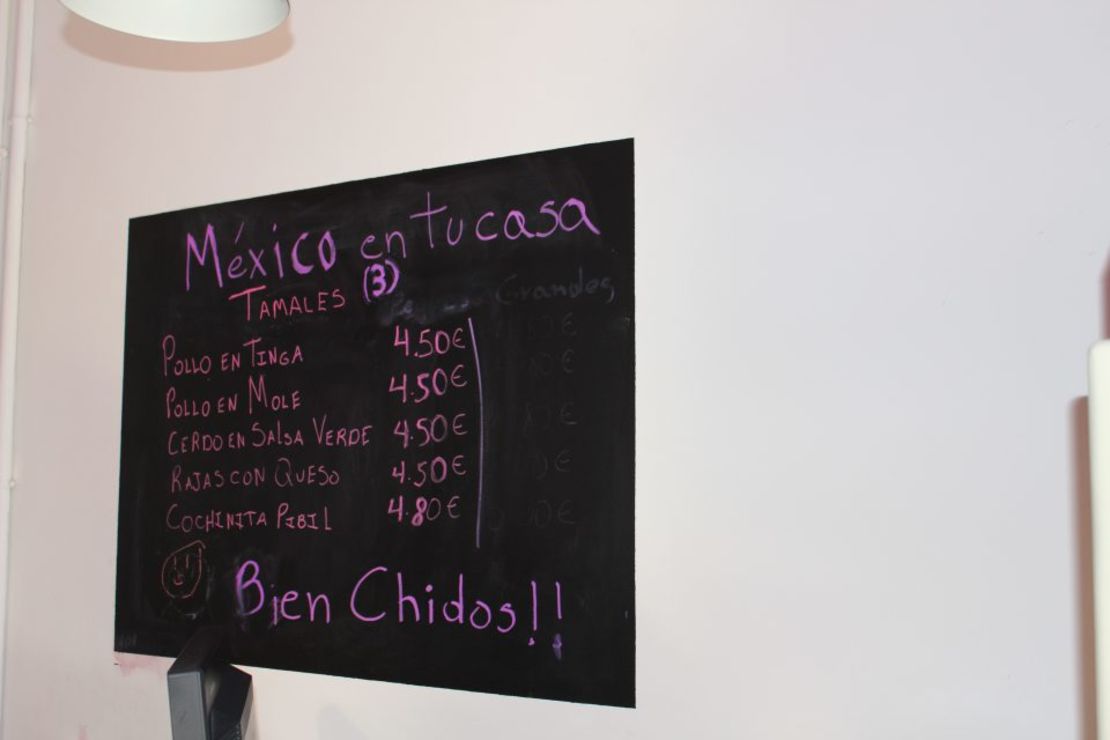 México en tu casa
TAMALES (3) Grandes
POLLO EN TINGA 4.50€
POLLO EN MOLE 4.50€
CERDO EN SALSA VERDE 4.50€
RAJAS CON QUESO 4.50€
COCHINITA PIBIL 4.80€
Bien Chidos!!